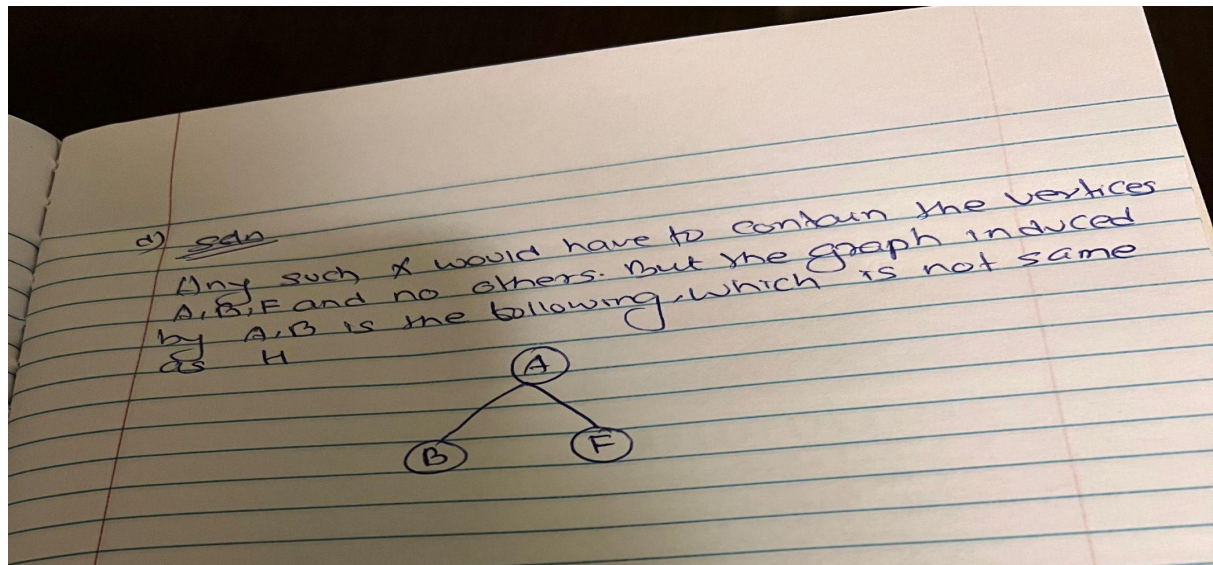 d) Soln
Any such X would have to contain the vertices
A,B,F and no others. But the graph induced
by A,B is the following, which is not same
as H
A
B F